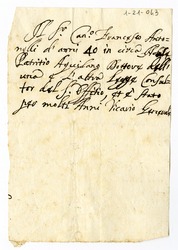 1-21-063
Il Sr. Can.co Francesco Anto-
nelli d'anni 40 in circa
Patritio Aquilano Dottore dell'
una e l'altra Legge Consul-
tor del S. Offitio, et è stato
per molti Anni Vicario Generale